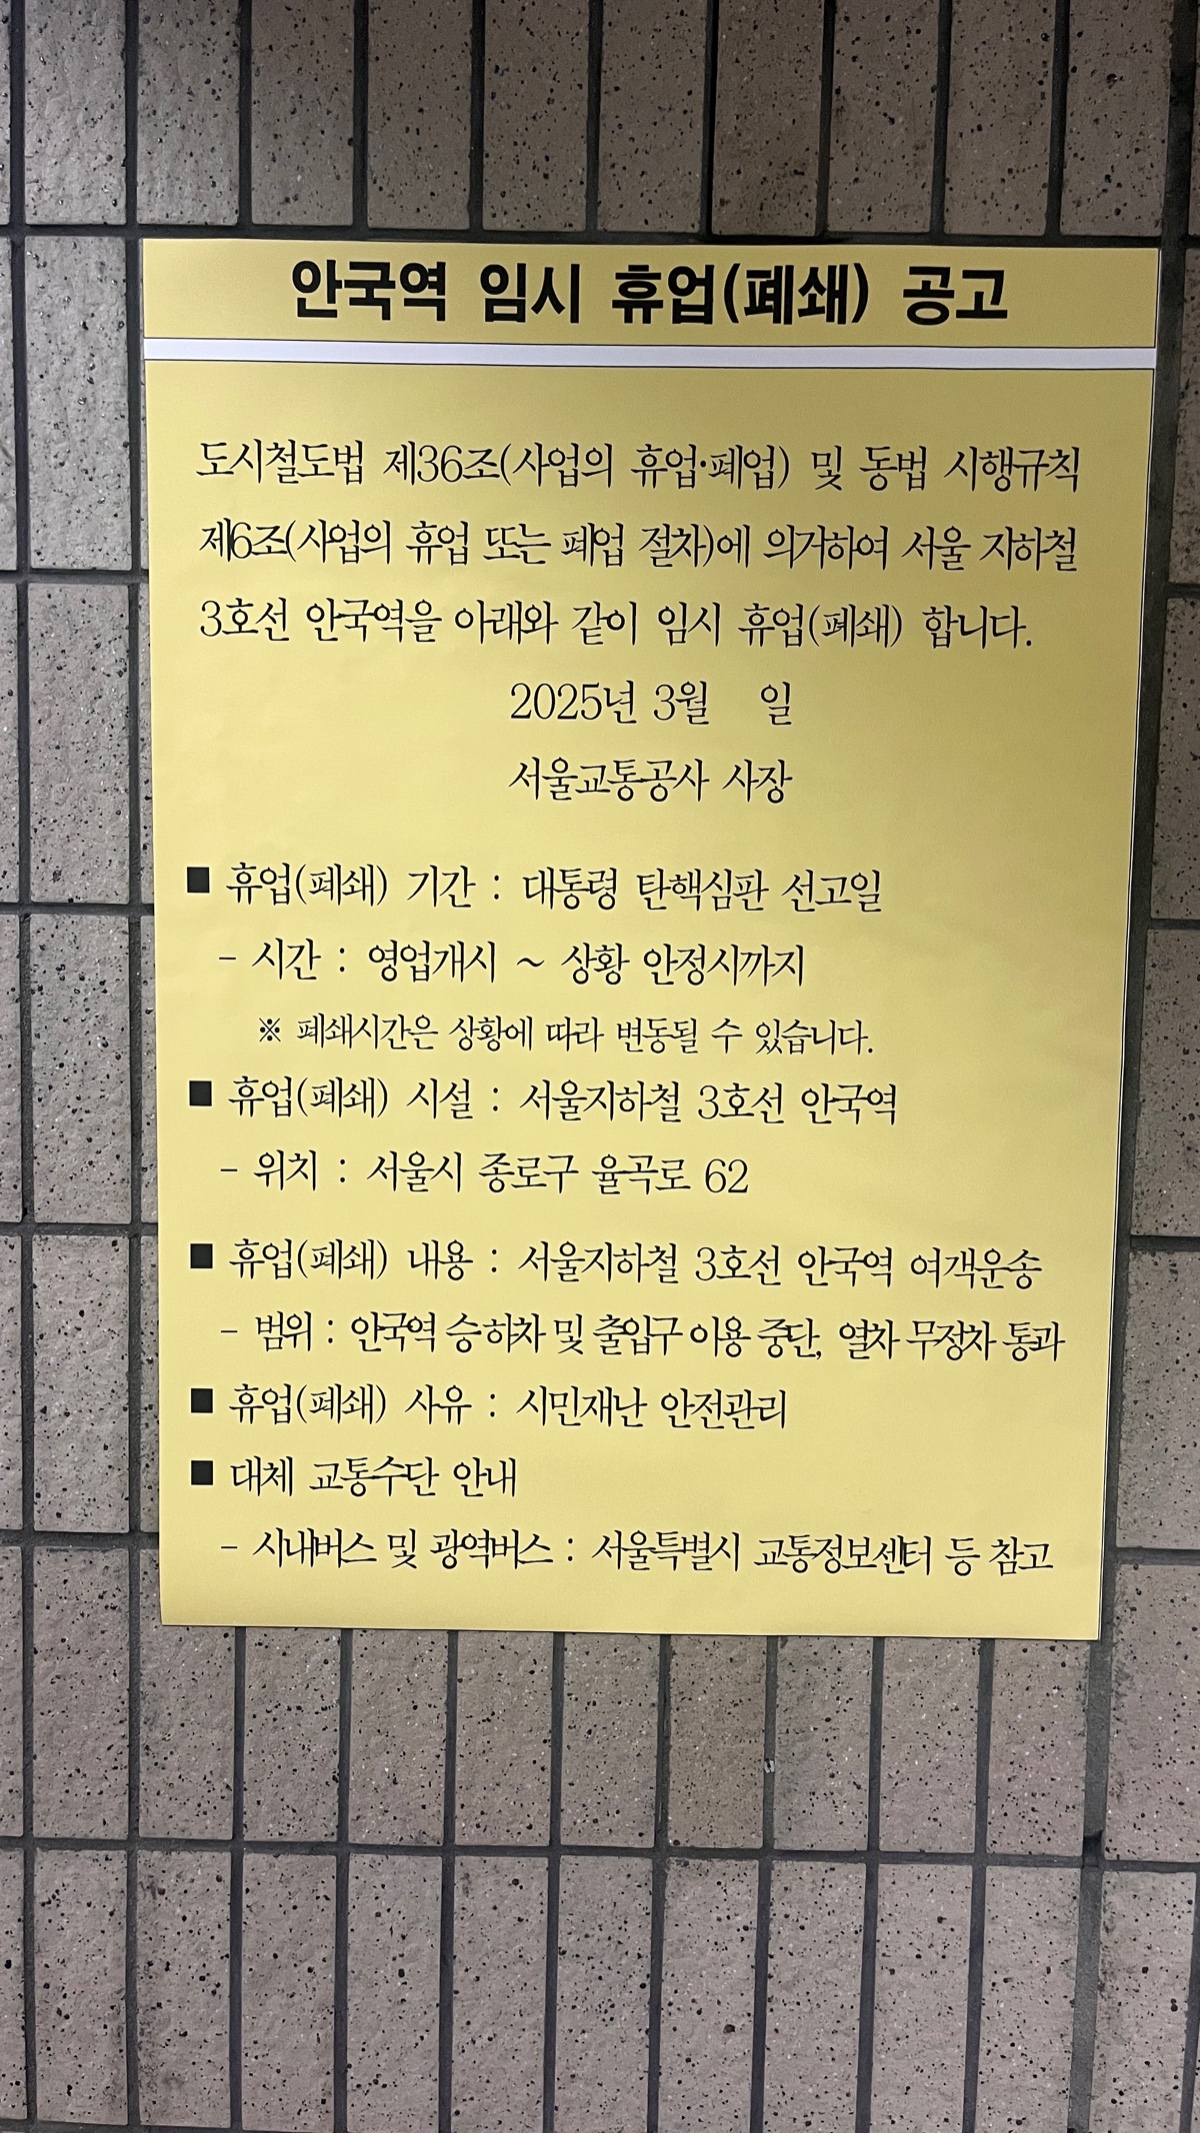 안국역 임시 휴업(폐쇄) 공고
도시철도법 제36조(사업의 휴업·폐업) 및 동법 시행규칙
제6조(사업의 휴업 또는 폐업 절차)에 의거하여 서울 지하철
3호선 안국역을 아래와 같이 임시 휴업(폐쇄) 합니다.
2025년 3월 일
서울교통공사 사장
■ 휴업(폐쇄) 기간 : 대통령 탄핵심판 선고일
- 시간 : 영업개시 ~ 상황 안정시까지
※ 폐쇄시간은 상황에 따라 변동될 수 있습니다.
■ 휴업(폐쇄) 시설 : 서울지하철 3호선 안국역
- 위치 : 서울시 종로구 율곡로 62
■ 휴업(폐쇄) 내용 : 서울지하철 3호선 안국역 여객운송
- 범위 : 안국역 승하차 및 출입구 이용 중단, 열차 무정차 통과
■ 휴업(폐쇄) 사유 : 시민재난 안전관리
■ 대체 교통수단 안내
- 시내버스 및 광역버스 : 서울특별시 교통정보센터 등 참고